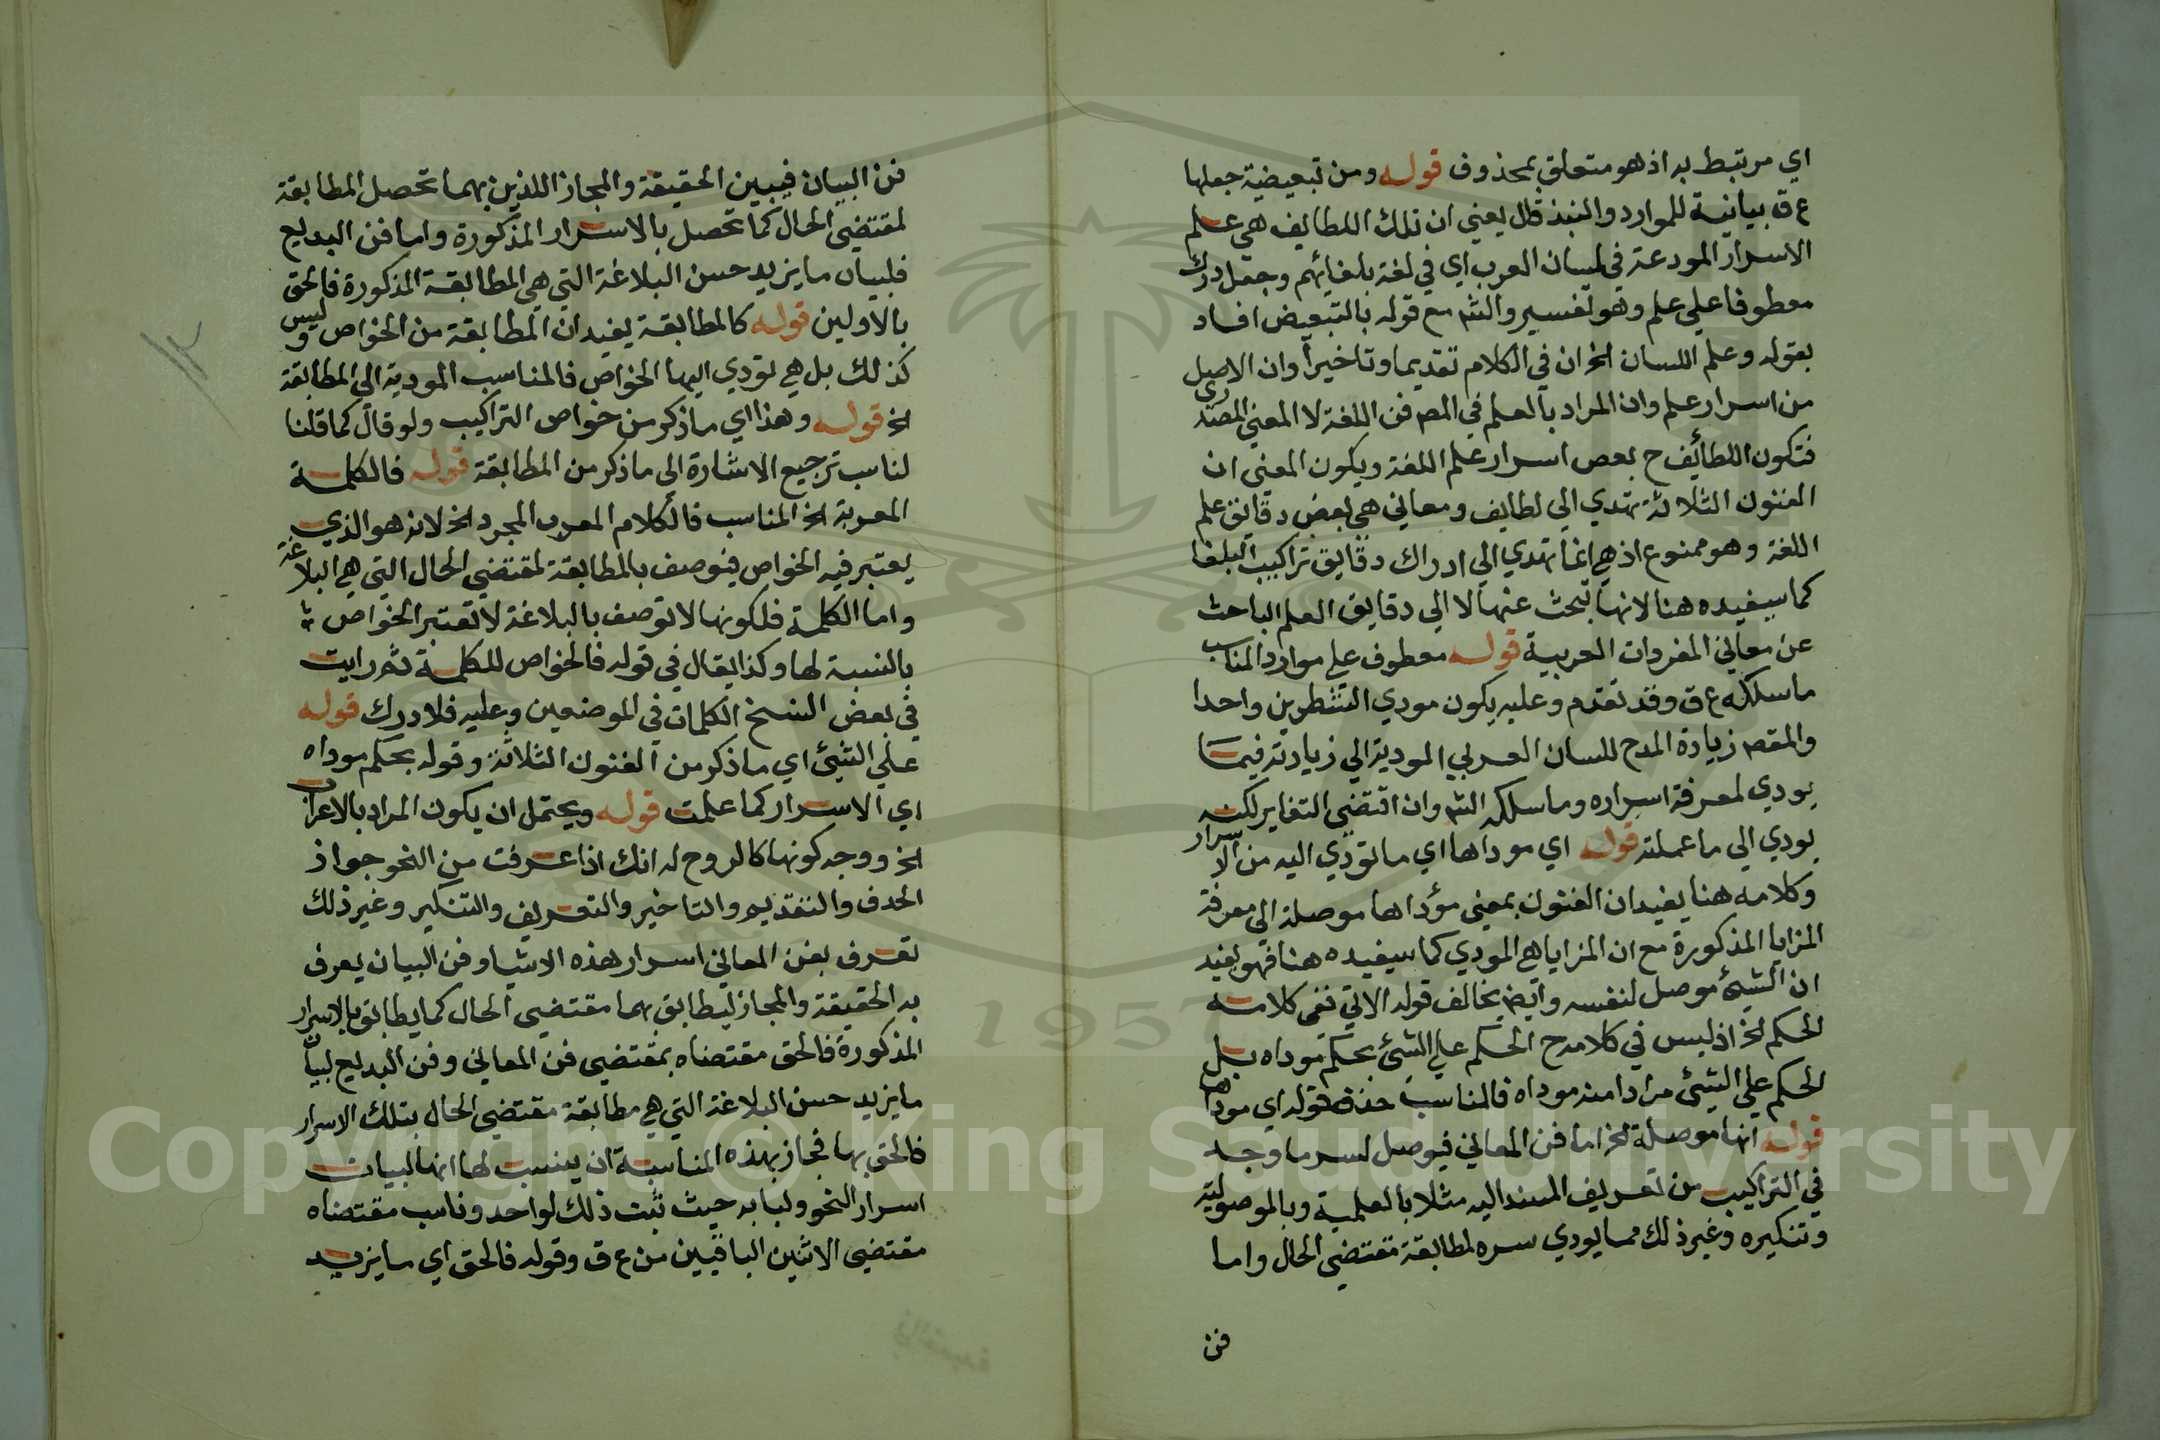 اي مرتبط به اذ هو متعلق بمحذوف قوله ومن تبعيضية جعلها
ع ق بيانية للموارد والنبذ قال يعني ان تلك اللطايف هي علم
الاسرار المودعة في لسان العرب اي في لغة بلغائهم وجعل درك
معطوفا علي علم وهو تفسير والشم مع قوله بالتبعيض افاد
بقوله وعلم اللسان الخ ان في الكلام تقديما وتاخيرا وان الاصل
من اسرار علم وان المراد بالعلم في المص فن اللغة لا المعني المصدري
فتكون اللطائف ح بعض اسرار علم اللغة ويكون المعني ان
الفنون الثلاثة تهتدي الي لطايف ومعاني هي بعض دقايق علم
اللغة وهو ممنوع اذ هي انما تهتدي الي ادراك دقايق تراكيب البلغا
كما سيفيده هنا لانها تبحث عنها لا الي دقايق العلم الباحث
عن معاني المفردات العربية قوله معطوف علي موارد المناسب
ما سلكه ع ق وقد تقدم وعليه يكون مودي الشطرين واحدا
والمقصم زيادة المدح للسان العربي المودية الي زيادته فيما
يودي لمعرفة اسراره وما سلكه الشم وان اقتضي التغاير لكنه
يودي الي ما عملته قوله اي موداها اي ما تؤدي اليه من الاسرار
وكلامه هنا يفيد ان الفنون بمعني مؤداها موصلة الي معرفة
المزايا المذكورة مع ان المزايا هي المودي كما سيفيده هنا فهو يفيد
ان الشيئ موصل لنفسه وايضم يخالف قوله الاتي ففي كلامه
الحكم الخ اذ ليس في كلامه ح الحكم علي الشيئ بحكم موداه بل
الحكم علي الشيئ مرادا منه موداه فالمناسب حذف قوله اي موداها
قوله انها موصلة الخ اما فن المعاني فيوصل لسر ما وجد
في التراكيب من تعريف المسند اليه مثلا بالعلمية وبالموصولية
وتنكيره وغير ذلك مما يودي سره لمطابقة مقتضي الحال واما
فن
فن البيان فيبين الحقيقة والمجاز اللذين بهما تحصل المطابقة
لمقتضي الحال كما تحصل بالاسرار المذكورة واما فن البديع
فلبيان ما يزيد حسن البلاغة التي هي المطابقة المذكورة فالحق
بالاولين قوله كالمطابقة يفيد ان المطابقة من الخواص وليس
كذلك بل هي تودي اليها الخواص فالمناسب المودية الي المطابقة
الخ قوله وهذا اي ما ذكر من خواص التراكيب ولو قال كما قلنا
لناسب ترجيع الاشارة الي ما ذكر من المطابقة قوله فالكلمة
المعربة الخ المناسب فالكلام المعرب المجرد الخ لانه هو الذي
يعتبر فيه الخواص فيوصف بالمطابقة لمقتضي الحال التي هي البلاغة
واما الكلمة فلكونها لا توصف بالبلاغة لا تعتبر الخواص
بالنسبة لها وكذا يقال في قوله فالخواص للكلمة ثم رايت
في بعض النسخ الكلمات في الموضعين وعليه فلا درك قوله
علي الشيئ اي ما ذكر من الفنون الثلاثة وقوله بحكم موداه
اي الاسرار كما علمت قوله ويحتمل ان يكون المراد بالاعراب
الخ ووجه كونها كالروح له انك اذا عرفت من النحو جواز
الحذف والتقديم والتاخير والتعريف والتنكير وغير ذلك
تعرف بفن المعاني اسرار هذه الاشيا وفن البيان يعرف
به الحقيقة والمجاز ليطابق بهما مقتضي الحال كما يطابق بالاسرار
المذكورة فالحق مقتضاه بمقتضي فن المعاني وفن البديع لبيان
ما يزيد حسن البلاغة التي هي مطابقة مقتضي الحال بتلك الاسرار
فالحق بها فجاز بهذه المناسبة ان ينسب لها انها لبيان
اسرار النحو ولبابه حيث ثبت ذلك لواحد وناسب مقتضاه
مقتضي الاثنين الباقيين من ع ق وقوله فالحق اي ما يزيد
Copyright © King Saud University
1957